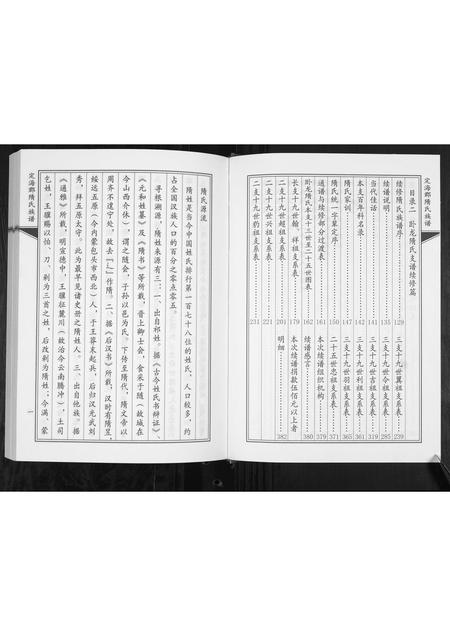 定海郡隋氏族谱
目录二 卧龙隋氏支谱续修篇
续修隋氏族谱序……129
续谱说明……135
当代佳话
本支百年科名录
隋氏家训
隋氏统一字辈定序
通谱与续修部分过渡表……161
卧龙隋氏本支十三世至二十五世图表……162
长支十九世翰、祥祖支系表……179
二支十九世超祖支系表……201
二支十九世兴祖支系表……221
二支十九世豹祖支系表……231
三支十九世翼祖支系表……239
三支十九世令祖支系表……285
三支十九世吉祖支系表……319
三支十九世利祖支系表……361
三支十九世羽祖支系表……365
二十五世忠祖支系表……371
本次续谱组织机构……379
续谱感言……380
本次续谱捐款伍佰元以上者
明细……382
隋氏源流
隋姓是当今中国姓氏排行第一百七十八位的姓氏，人口较多，约
占全国汉族人口的百分之零点零五。
寻根溯源，隋姓来源有三：一、出自祁姓。据《古今姓氏书辩证》、
《元和姓纂》及《隋书》等所载，晋上卿士会，食采于随（故城在
今山西介休），谓之随会，子孙以邑为氏。下传至隋代，隋文帝以
周齐不遑宁处，故去「辶」作隋。二、据《后汉书》所载，汉时有隋昱，
绥远五原（今内蒙包头市西北）人，于王莽末起兵，后归汉光武刘
秀，拜五原太守。此为最早见诸史册之隋姓人。三、出自他族。据
《通雅》所载，明宣德中，王骥征麓川（故治今云南腾冲），土司
乞姓，王骥赐以怕、刀、剁为三者之姓，后改剁为隋姓；今满、蒙
定海郡隋氏族谱
一